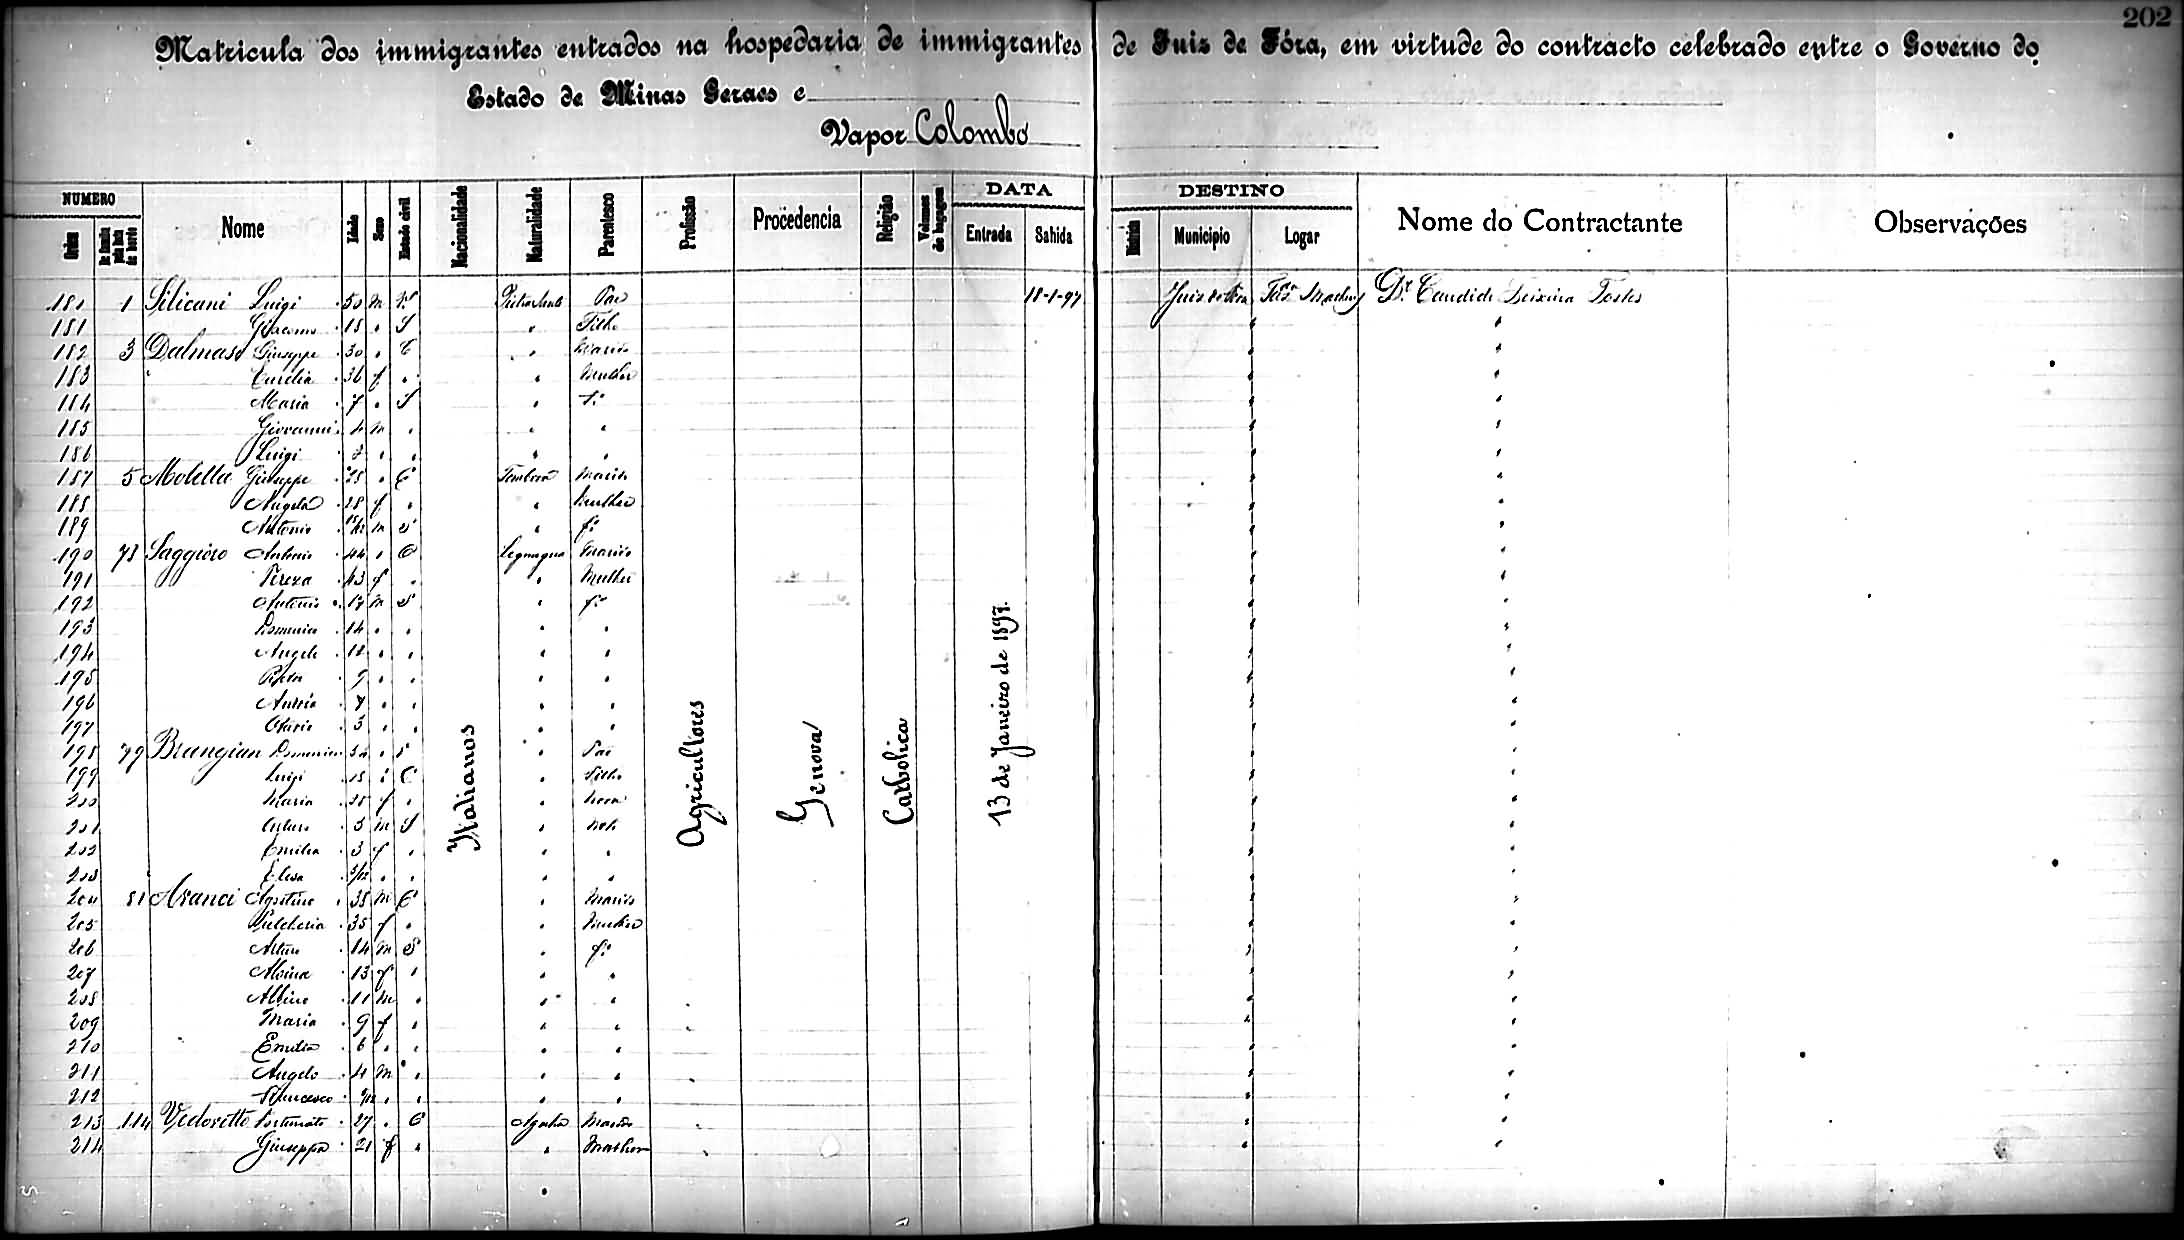 202
Matricula dos immigrantes entrados na hospedaria de immigrantes de Juiz de Fóra, em virtude do contracto celebrado entre o Governo do
Estado de Minas Geraes e
Vapor Colombo
NUMERO Nome Idade Sexo Estado civil Nacionalidade Naturalidade Parentesco Profissão Procedencia Religião Volumes de bagagem DATA DESTINO Nome do Contractante Observações
Ordem Entrada Sahida Districto Municipio Logar
Italianos Agricultores Genova Catholica 13 de Janeiro de 1897.
180 1 Silicani Luigi 50 m Pae 18-1-97 Juiz de Fóra Dr. Candido Teixeira Tostes
181 Giacomo 18 " S " Filho " "
182 3 Dalmaso Giuseppe 30 " C " Marido " "
183 36 f " " Mulher " "
184 Maria 7 " S " f.º " "
185 Giovanni 4 m " " " " "
186 Luigi 2 " " " " " "
187 5 Moletta Giuseppe 25 " C Marido " "
188 Angela 28 f " " Mulher " "
189 Antonio m S " f.º " "
190 78 Saggioro Antonio 44 " C Legnagno Marido " "
191 Tereza 43 f " " Mulher " "
192 Antonio 17 m S " f.º " "
193 Domenico 14 " " " " " "
194 Angelo " " " " " "
195 Pietro 9 " " " " " "
196 7 " " " " " "
197 3 " " " " " "
198 79 Brungian Domenico " " Pae " "
199 Luigi " C " Filho " "
200 Maria f " " Nora " "
201 Arturo 5 m S " Neto " "
202 Emilia 3 f " " " " "
203 Elisa " " " " " "
204 81 Aranci Agostino 38 m C " Marido " "
205 Pulcheria 35 f " " Mulher " "
206 Arturo 14 m S " f.º " "
207 13 f " " " " "
208 Albino 11 m " " " " "
209 Maria 9 f " " " " "
210 Emilia 6 " " " " " "
211 Angelo 4 m " " " " "
212 Francesco " " " " " "
213 114 Vedovetto Fortunato 27 " C Marido " "
214 Giuseppa 21 f " " Mulher " "